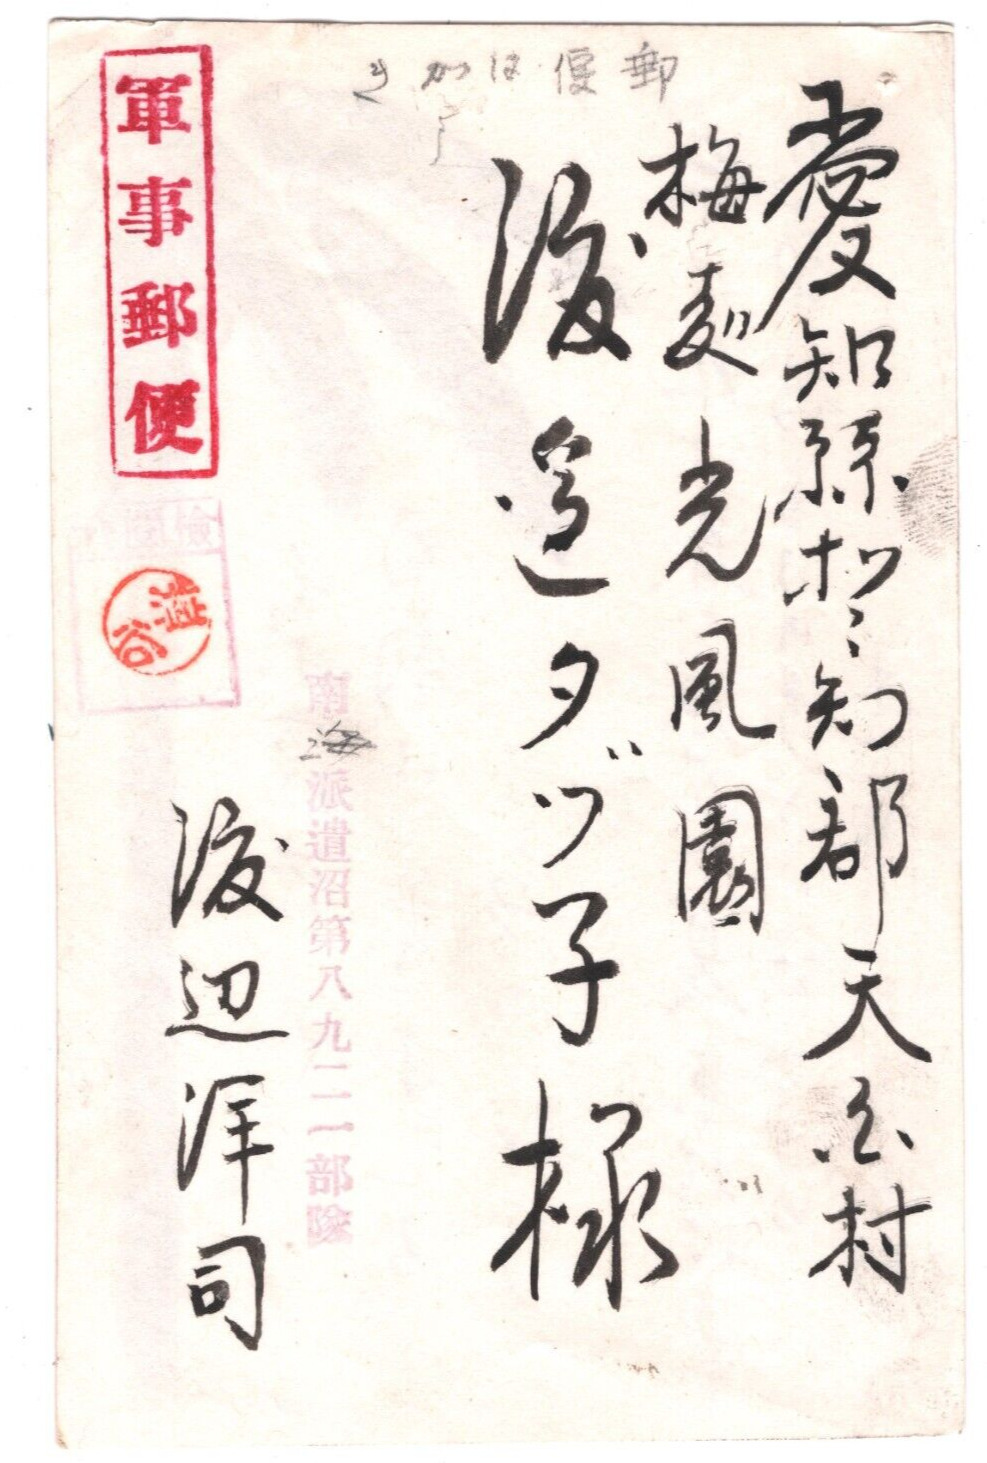 郵便はがき
愛知縣愛知郡天白村
梅 光風園
渡邉タヅ子様
軍事郵便
検閲
南海派遣沼第八九二一部隊
渡辺洋司